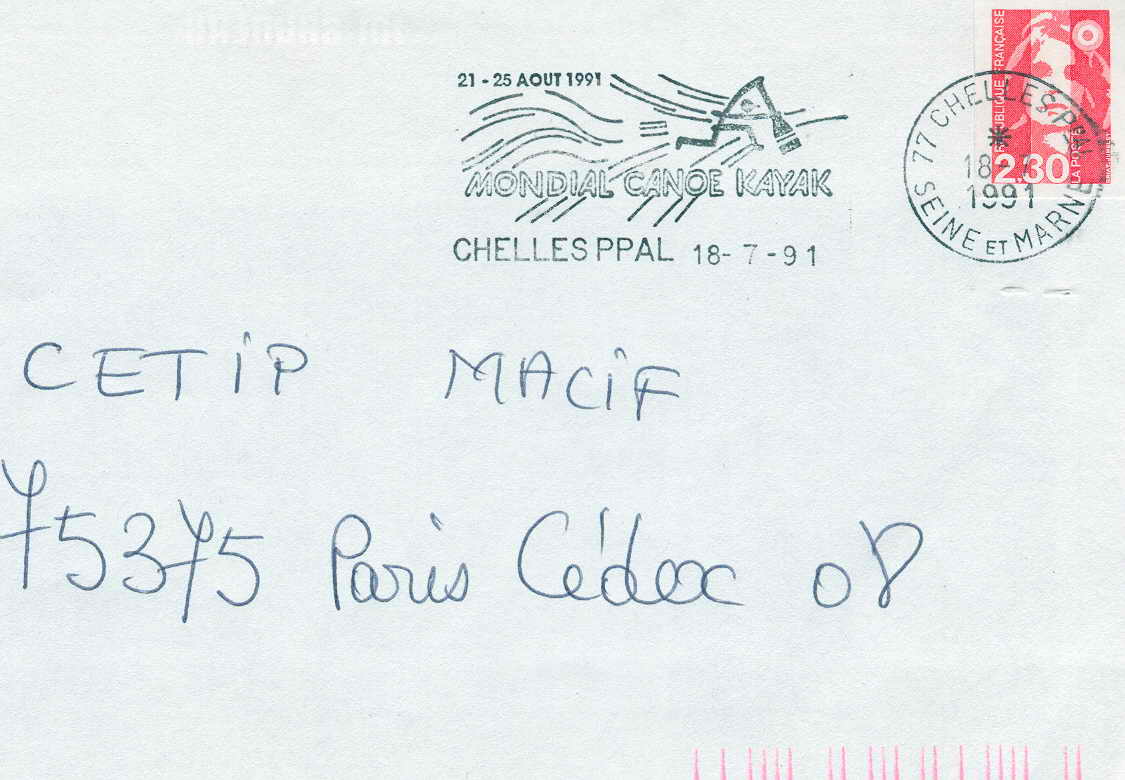 21 - 25 AOUT 1991
MONDIAL CANOE KAYAK
CHELLES PPAL 18-7-91
RÉPUBLIQUE FRANÇAISE
2,30
LA POSTE
77 CHELLES PPAL
18-7
1991
SEINE ET MARNE
CETIP MACIF
75375 Paris Cédex 08